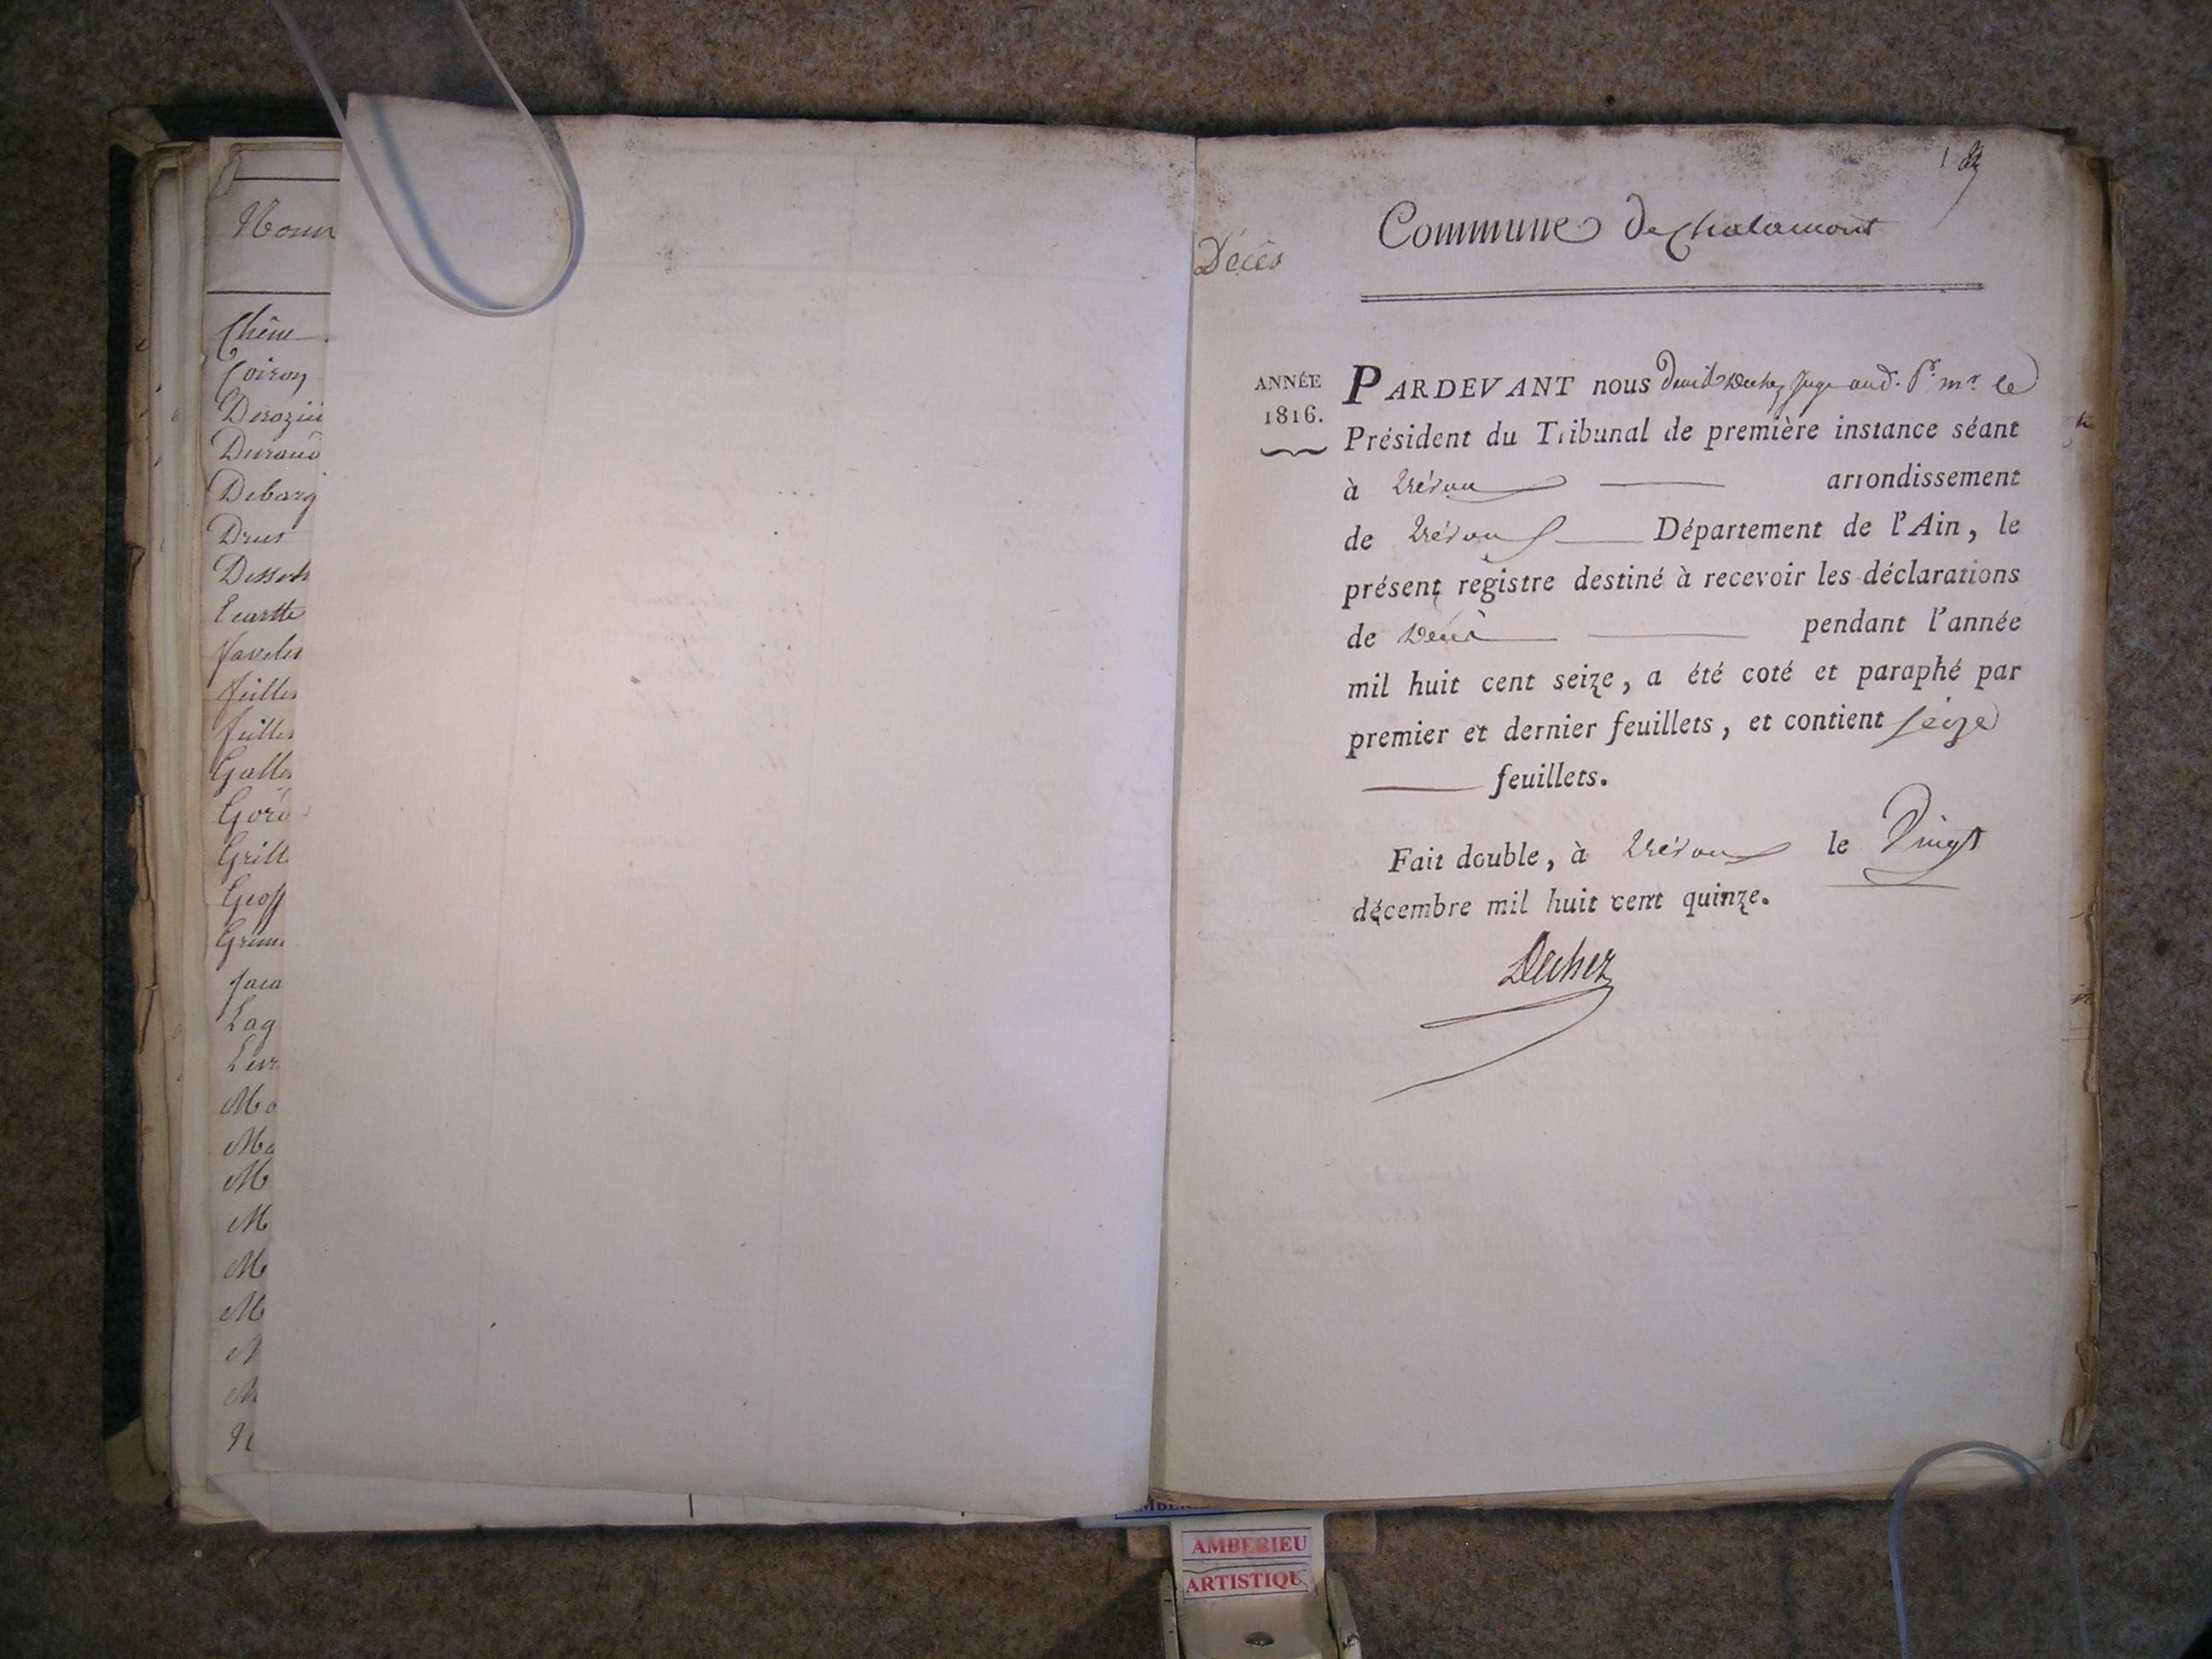 Noms
Chêne
Coiron
Durand
Debarg
Drus
Ecartte
Gori
Grill
Geoff
Jaca
Lag
Mo
Mo
M
M
M
M
M
Décès
Commune de Chalamont
ANNÉE
1816.
PARDEVANT nous Juge aud. le
Président du Tribunal de première instance séant
à Trévoux arrondissement
de Trévoux Département de l'Ain, le
présent registre destiné à recevoir les déclarations
de Décès pendant l'année
mil huit cent seize, a été coté et paraphé par
premier et dernier feuillets, et contient seize
feuillets.
Fait double, à Trévoux le Vingt
décembre mil huit cent quinze.
Dechez
AMBERIEU
ARTISTIQU